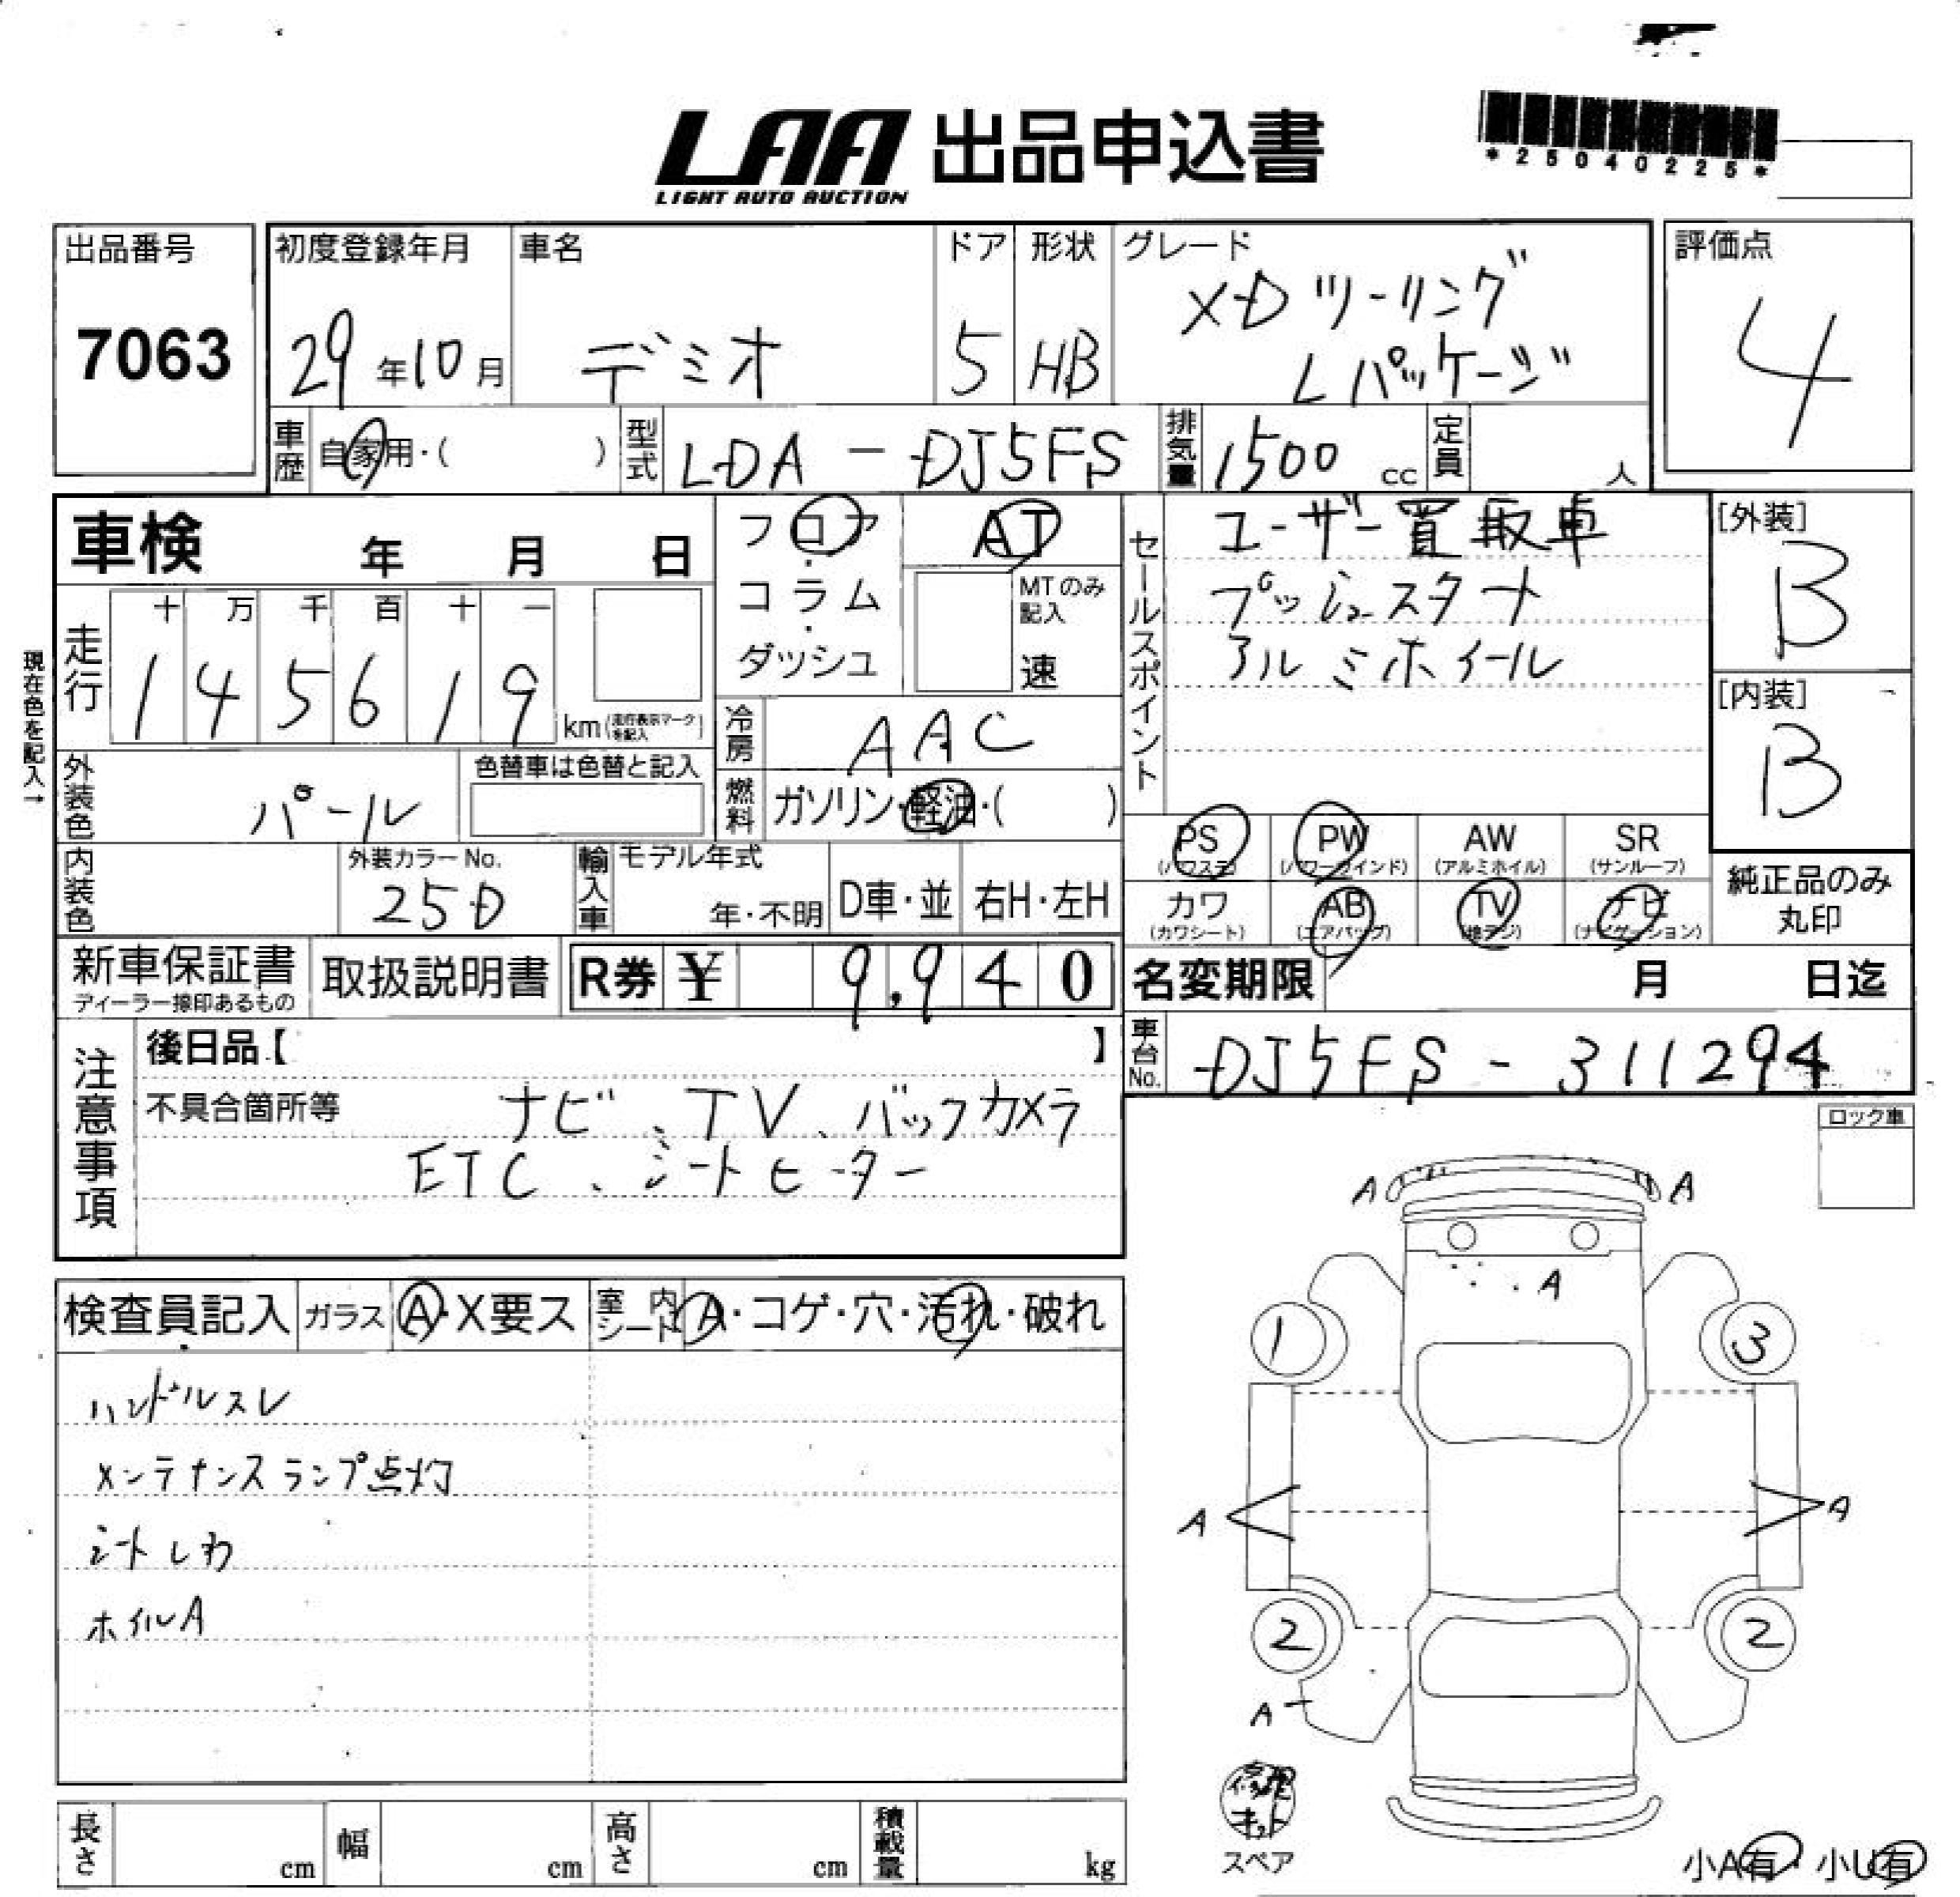 LAA 出品申込書
LIGHT AUTO AUCTION
*25040225*
出品番号
7063
初度登録年月
29年10月
車名
デミオ
ドア
5
形状
HB
グレード
XDツーリング
Lパッケージ
評価点
4
車歴 自家用・( )
型式 LDA-DJ5FS
排気量 1500 cc
定員 人
車検 年 月 日
フロア・コラム・ダッシュ
AT
MTのみ記入
速
セールスポイント
ユーザー買取車
プッシュスタート
アルミホイール
[外装]
B
[内装]
B
現在色を記入→
走行
十 万 千 百 十 一
1 4 5 6 1 9 km(走行表示マークを記入)
冷房 AAC
外装色 パール
色替車は色替と記入
燃料 ガソリン・軽油・( )
PS (パワステ)
PW (パワーウインド)
AW (アルミホイル)
SR (サンルーフ)
カワ (カワシート)
AB (エアバッグ)
TV
ナビ (ナビゲーション)
純正品のみ
丸印
内装色
外装カラーNo.
25D
輸入車
モデル年式
年・不明
D車・並
右H・左H
新車保証書
ディーラー捺印あるもの
取扱説明書
R券 ¥ 9,940
名変期限 月 日迄
車台No. DJ5FS-311294
注意事項
後日品【 】
不具合箇所等 ナビ、TV、バックカメラ
ETC、シートヒーター
ロック車
検査員記入
ガラス A・X要ス
室内シート A・コゲ・穴・汚れ・破れ
ハンドルスレ
メンテナンスランプ点灯
シートしわ
ホイルA
A A
A
1 3
A A
2 2
A
修理
キット
スペア
小A有・小U有
長さ cm
幅 cm
高さ cm
積載量 kg